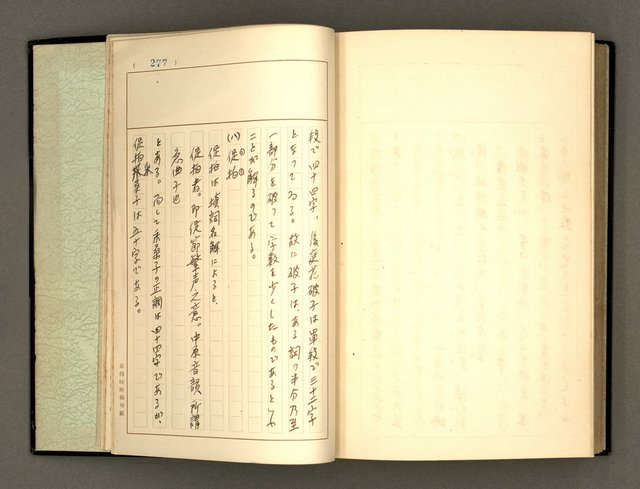 (277)
段で四十四字、後庭花破子は単段で三十二字
となつてゐる。故に破子は、ある詞の半分乃至
一部分を破つて字数を少くしたものであるといふ
ことが解るのである。
(八)促拍
促拍は填詞名解によると、
促拍者。即促節繁声之意。中原音韻所謂
急曲子也
とある。而して采桑子の正調は四十四字であるが、
促拍采桑子は五十字である。